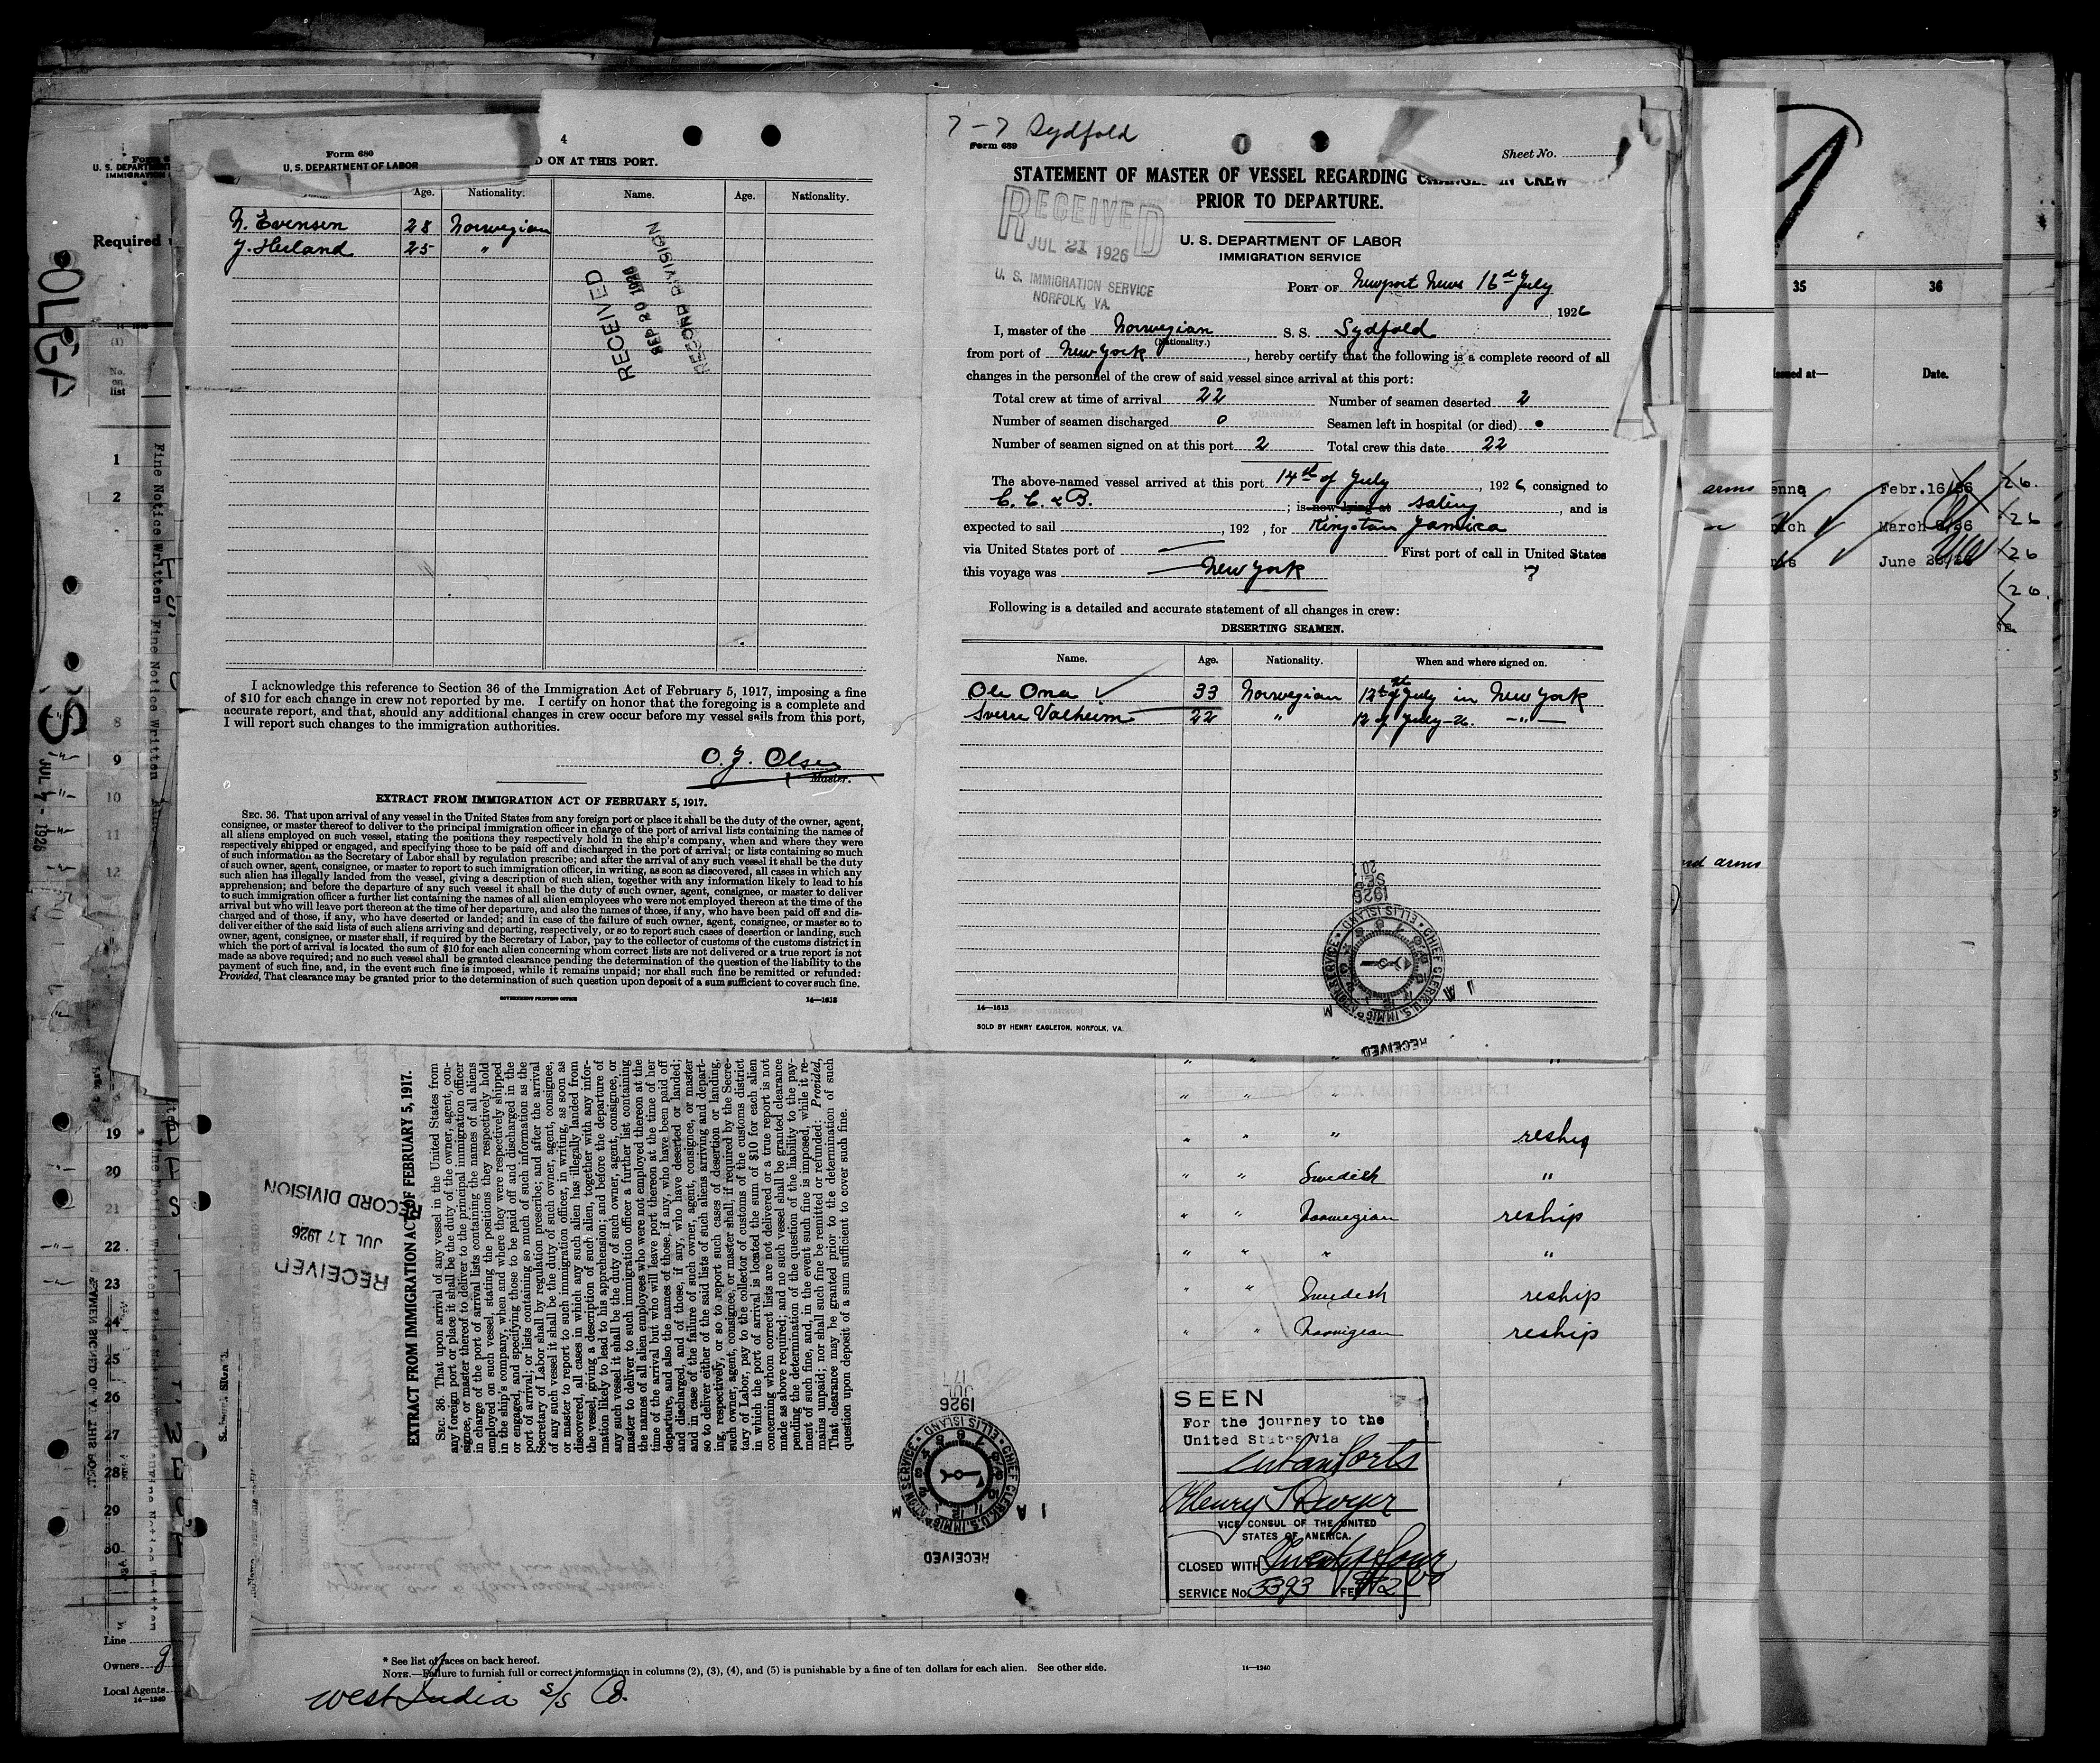 4
Form 680
U. S. DEPARTMENT OF LABOR
D ON AT THIS PORT.
Age. Nationality. Name. Age. Nationality.
N. Evensen 28 Norwegian
25 "
RECEIVED
SEP 20 1926
RECORD DIVISION
I acknowledge this reference to Section 36 of the Immigration Act of February 5, 1917, imposing a fine
of $10 for each change in crew not reported by me. I certify on honor that the foregoing is a complete and
accurate report, and that, should any additional changes in crew occur before my vessel sails from this port,
I will report such changes to the immigration authorities.
O. J. Olsen
Master.
EXTRACT FROM IMMIGRATION ACT OF FEBRUARY 5, 1917.
SEC. 36. That upon arrival of any vessel in the United States from any foreign port or place it shall be the duty of the owner, agent,
consignee, or master thereof to deliver to the principal immigration officer in charge of the port of arrival lists containing the names of
all aliens employed on such vessel, stating the positions they respectively hold in the ship's company, when and where they were
respectively shipped or engaged, and specifying those to be paid off and discharged in the port of arrival; or lists containing so much
of such information as the Secretary of Labor shall by regulation prescribe; and after the arrival of any such vessel it shall be the duty
of such owner, agent, consignee, or master to report to such immigration officer, in writing, as soon as discovered, all cases in which any
such alien has illegally landed from the vessel, giving a description of such alien, together with any information likely to lead to his
apprehension; and before the departure of any such vessel it shall be the duty of such owner, agent, consignee, or master to deliver
to such immigration officer a further list containing the names of all alien employees who were not employed thereon at the time of the
arrival but who will leave port thereon at the time of her departure, and also the names of those, if any, who have been paid off and dis-
charged and of those, if any, who have deserted or landed; and in case of the failure of such owner, agent, consignee, or master so to
deliver either of the said lists of such aliens arriving and departing, respectively, or so to report such cases of desertion or landing, such
owner, agent, consignee, or master shall, if required by the Secretary of Labor, pay to the collector of customs of the customs district in
which the port of arrival is located the sum of $10 for each alien concerning whom correct lists are not delivered or a true report is not
made as above required; and no such vessel shall be granted clearance pending the determination of the question of the liability to the
payment of such fine, and, in the event such fine is imposed, while it remains unpaid; nor shall such fine be remitted or refunded:
Provided, That clearance may be granted prior to the determination of such question upon deposit of a sum sufficient to cover such fine.
GOVERNMENT PRINTING OFFICE 14—1613
7-7 Sydfold
Form 689 Sheet No.
STATEMENT OF MASTER OF VESSEL REGARDING CHANGES IN CREW
PRIOR TO DEPARTURE.
RECEIVED
JUL 21 1926
U. S. IMMIGRATION SERVICE
NORFOLK, VA.
U. S. DEPARTMENT OF LABOR
IMMIGRATION SERVICE
PORT OF Newport News 16th July
, 1926
I, master of the Norwegian S. S. Sydfold
(Nationality.)
from port of New York, hereby certify that the following is a complete record of all
changes in the personnel of the crew of said vessel since arrival at this port:
Total crew at time of arrival 22 Number of seamen deserted 2
Number of seamen discharged 0 Seamen left in hospital (or died)
Number of seamen signed on at this port 2 Total crew this date 22
The above-named vessel arrived at this port 14th of July, 1926 consigned to
C. C. & B. ; is now lying at saling, and is
expected to sail , 192 , for Kingston Jamica
via United States port of — First port of call in United States
this voyage was — New York
Following is a detailed and accurate statement of all changes in crew:
DESERTING SEAMEN.
Name. Age. Nationality. When and where signed on.
Ole Oma 33 Norwegian 12th of July in New York
Sverre Valheim 22 " 12 of July-26. —"—
14—1613
SOLD BY HENRY EAGLETON, NORFOLK, VA.
1926
SEP
20
CHIEF CLERK, U.S. IMMIGRATION SERVICE • ELLIS ISLAND •
RECEIVED
35 36
Issued at— Date.
arms enna Febr.16/
ich March
June
26.
26
26
26.
nd arms
OLGA
JUL 7- 1926
Required
No.
on
list
1
2
8
9
10
11
12
19
20
21
22
23
24
25
26
27
28
29
30
Fine Notice Written Fine Notice Written
SEAMEN SIGNED ON AT THIS PORT.
RECEIVED
JUL 17 1926
RECORD DIVISION
EXTRACT FROM IMMIGRATION ACT OF FEBRUARY 5, 1917.
SEC. 36. That upon arrival of any vessel in the United States from
any foreign port or place it shall be the duty of the owner, agent, con-
signee, or master thereof to deliver to the principal immigration officer
in charge of the port of arrival lists containing the names of all aliens
employed on such vessel, stating the positions they respectively hold
in the ship's company, when and where they were respectively shipped
or engaged, and specifying those to be paid off and discharged in the
port of arrival; or lists containing so much of such information as the
Secretary of Labor shall by regulation prescribe; and after the arrival
of any such vessel it shall be the duty of such owner, agent, consignee,
or master to report to such immigration officer, in writing, as soon as
discovered, all cases in which any such alien has illegally landed from
the vessel, giving a description of such alien, together with any infor-
mation likely to lead to his apprehension; and before the departure of
any such vessel it shall be the duty of such owner, agent, consignee, or
master to deliver to such immigration officer a further list containing
the names of all alien employees who were not employed thereon at the
time of the arrival but who will leave port thereon at the time of her
departure, and also the names of those, if any, who have been paid off
and discharged, and of those, if any, who have deserted or landed;
and in case of the failure of such owner, agent, consignee, or master
so to deliver either of the said lists of such aliens arriving and depart-
ing, respectively, or so to report such cases of desertion or landing,
such owner, agent, consignee, or master shall, if required by the Secre-
tary of Labor, pay to the collector of customs of the customs district
in which the port of arrival is located the sum of $10 for each alien
concerning whom correct lists are not delivered or a true report is not
made as above required; and no such vessel shall be granted clearance
pending the determination of the question of the liability to the pay-
ment of such fine, and, in the event such fine is imposed, while it re-
mains unpaid; nor shall such fine be remitted or refunded: Provided,
That clearance may be granted prior to the determination of such
question upon deposit of a sum sufficient to cover such fine.
1926
JUL
17
CHIEF CLERK, U.S. IMMIGRATION SERVICE • ELLIS ISLAND •
RECEIVED
" " " "
" " "
" " " reship
" " Swedish "
" " Norwegian reship
" " " "
" " Swedish reship
" " Norwegian reship
SEEN
For the journey to the
United States via
Cuban Ports
Henry T Dwyer
VICE CONSUL OF THE UNITED
STATES OF AMERICA.
CLOSED WITH Twenty four
SERVICE No. 3393 FEE $2 00
Line
Owners
Local Agents
14—1240
* See list of races on back hereof.
NOTE.—Failure to furnish full or correct information in columns (2), (3), (4), and (5) is punishable by a fine of ten dollars for each alien. See other side.
14—1240
West India s/s Co.